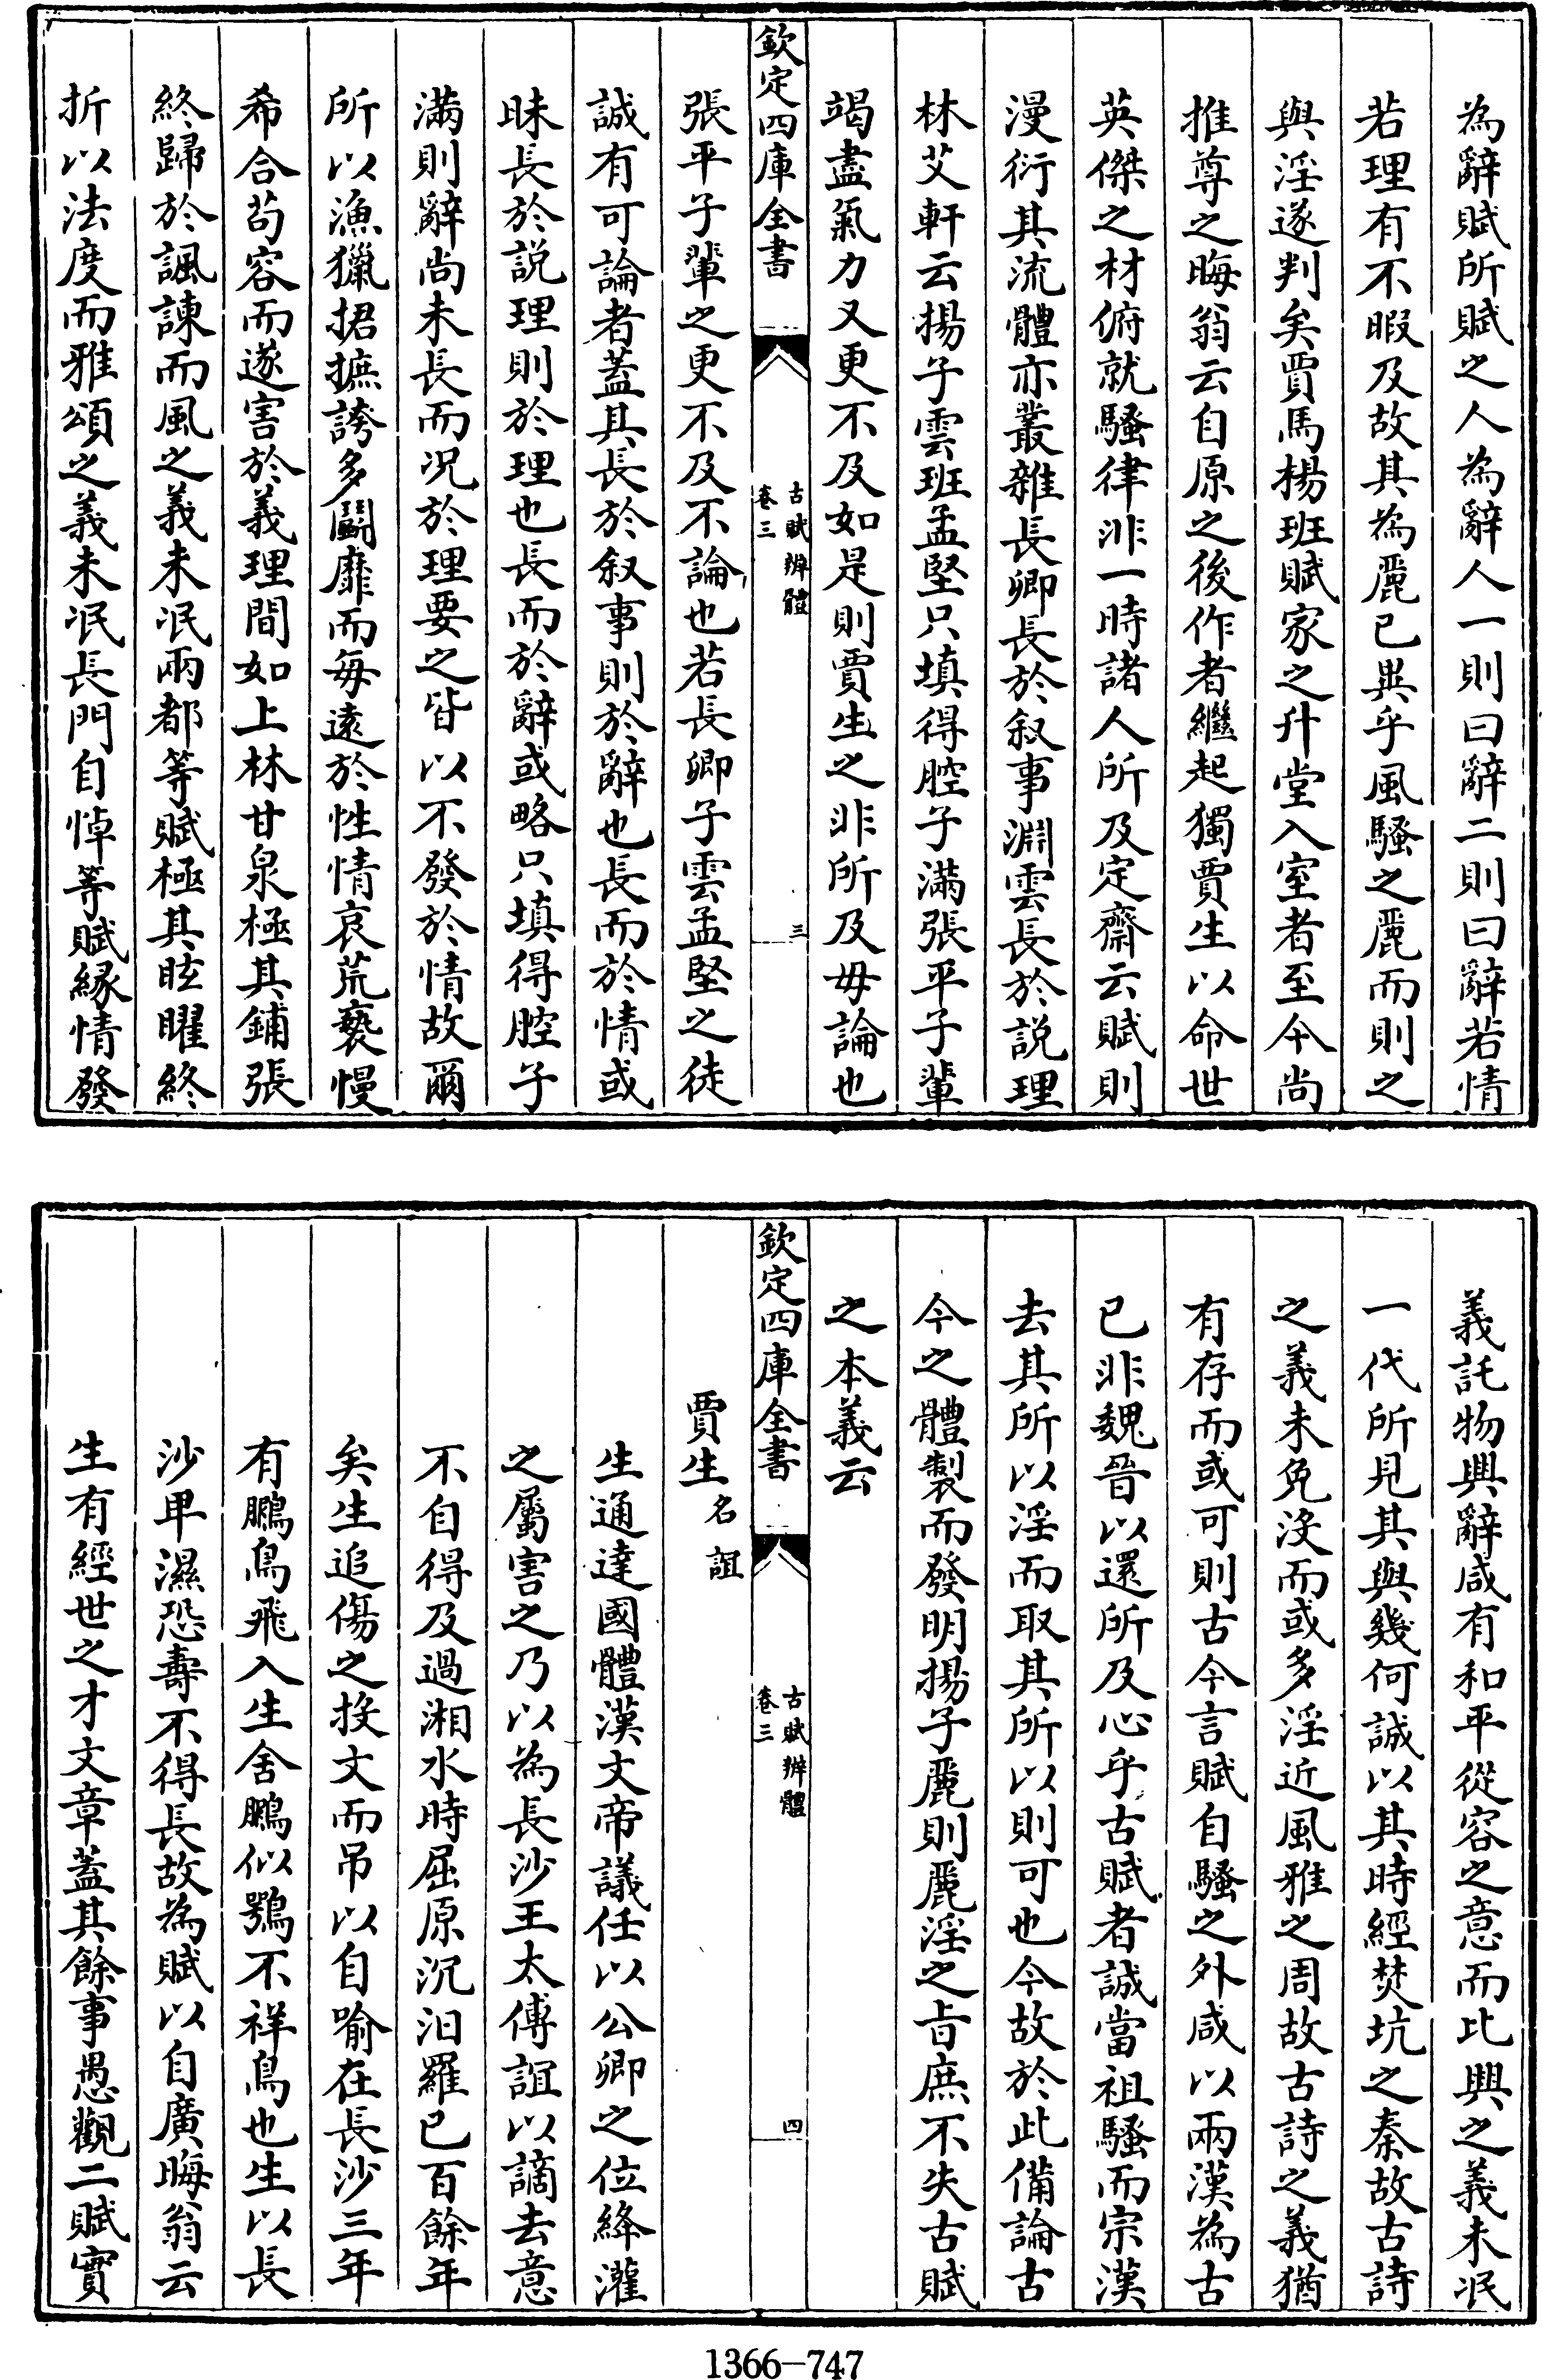 為辭賦所賦之人為辭人一則曰辭二則曰辭若情
若理有不暇及故其為麗已異乎風騷之麗而則之
與淫遂判矣賈馬楊班賦家之升堂入室者至今尚
推尊之晦翁云自原之後作者繼起獨賈生以命世
英傑之材俯就騷律非一時諸人所及定齋云賦則
漫衍其流體亦叢雜長卿長於叙事淵雲長於説理
林艾軒云揚子雲班孟堅只填得腔子滿張平子輩
竭盡氣力又更不及如是則賈生之非所及毋論也
欽定四庫全書
古賦辨體
卷三
三
張平子輩之更不及不論也若長卿子雲孟堅之徒
誠有可論者蓋其長於叙事則於辭也長而於情或
昧長於説理則於理也長而於辭或略只填得腔子
滿則辭尚未長而况於理要之皆以不發於情故爾
所以漁獵捃摭誇多鬭靡而每遠於性情哀荒褻慢
希合苟容而遂害於義理間如上林甘泉極其鋪張
終歸於諷諫而風之義未泯兩都等賦極其眩曜終
折以法度而雅頌之義未泯長門自悼等賦緣情發
義託物興辭咸有和平從容之意而比興之義未泯
一代所見其與幾何誠以其時經焚坑之秦故古詩
之義未免没而或多淫近風雅之周故古詩之義猶
有存而或可則古今言賦自騷之外咸以兩漢為古
已非魏晉以還所及心乎古賦者誠當祖騷而宗漢
去其所以淫而取其所以則可也今故於此備論古
今之體製而發明揚子麗則麗淫之㫖庶不失古賦
之本義云
欽定四庫全書
古賦辨體
卷三
四
賈生名誼
生通達國體漢文帝議任以公卿之位絳灌
之屬害之乃以為長沙王太傅誼以謫去意
不自得及過湘水時屈原沉汨羅已百餘年
矣生追傷之投文而吊以自喻在長沙三年
有鵩鳥飛入生舍鵩似鴞不祥鳥也生以長
沙卑濕恐壽不得長故為賦以自廣晦翁云
生有經世之才文章蓋其餘事愚觀二賦實
1366-747